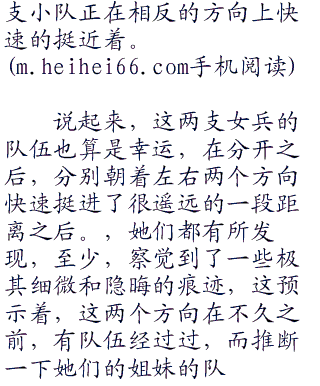 支小队正在相反的方向上快
速的挺近着。
(m.heihei66.com手机阅读)
说起来，这两支女兵的
队伍也算是幸运，在分开之
后，分别朝着左右两个方向
快速挺进了很遥远的一段距
离之后。，她们都有所发
现，至少，察觉到了一些极
其细微和隐晦的痕迹，这预
示着，这两个方向在不久之
前，有队伍经过过，而推断
一下她们的姐妹的队